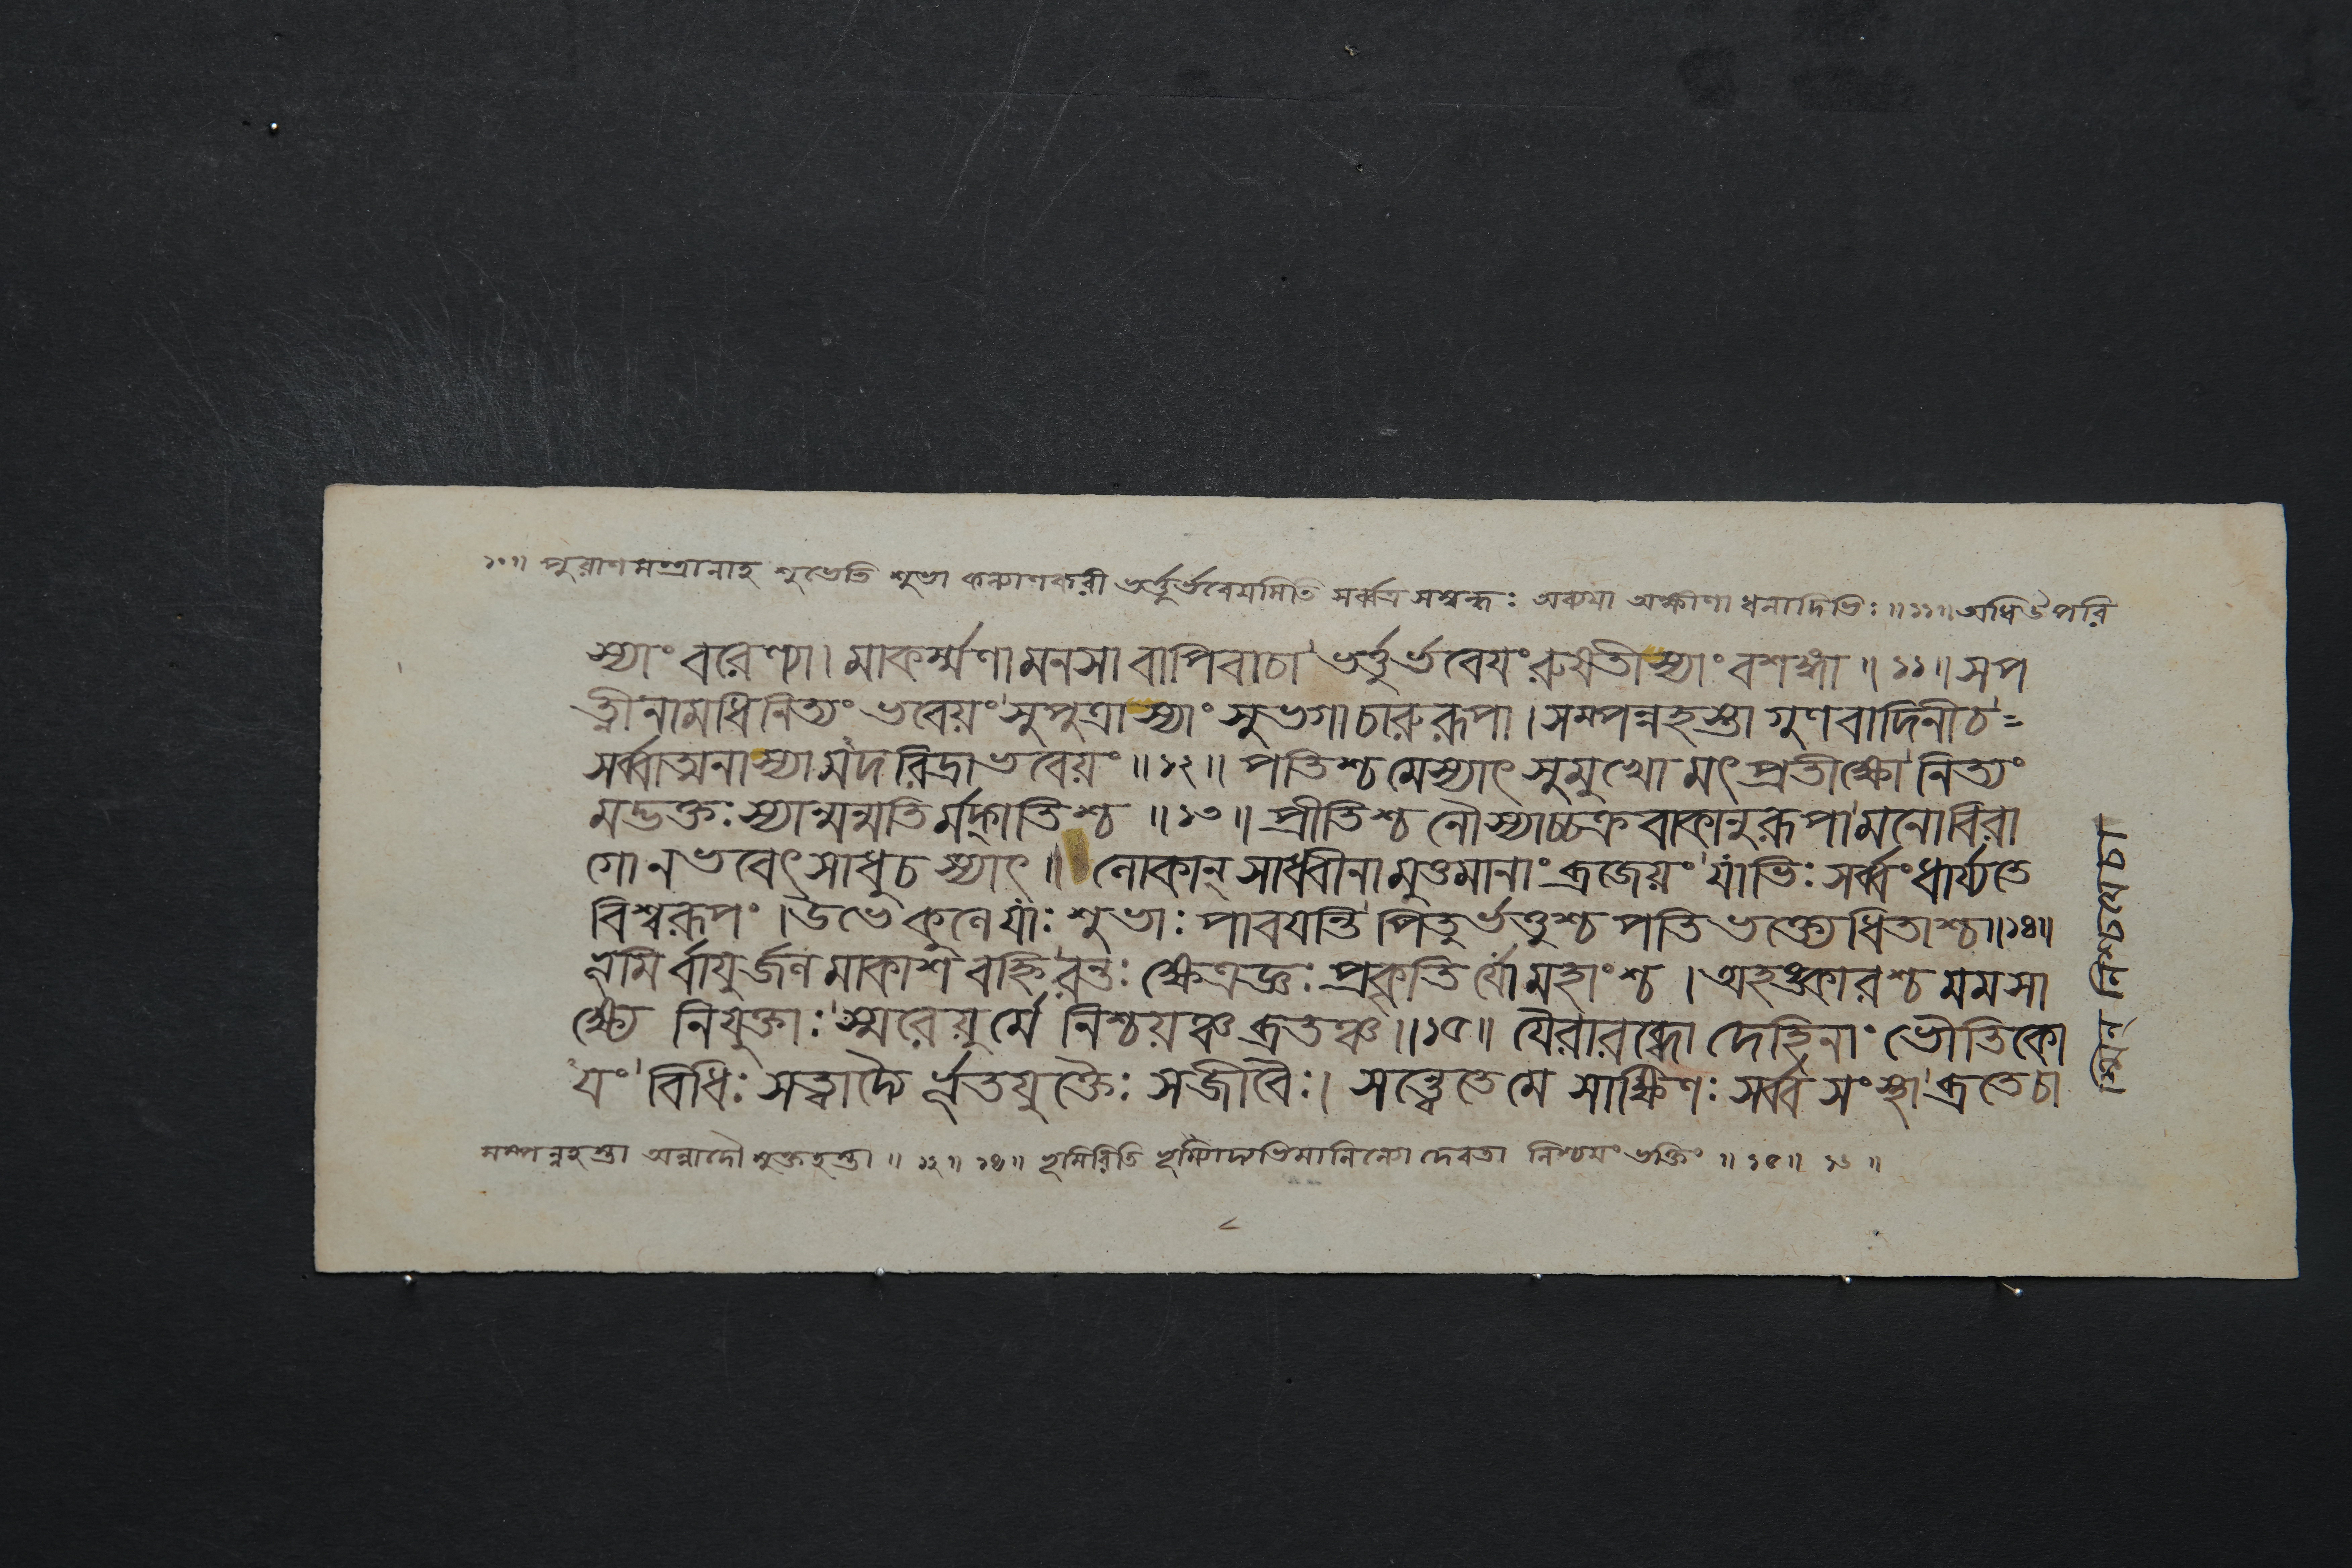 ১০॥ পুরাণমন্ত্রানাহ শুভেতি শুভা কল্যাণকরী ভর্ত্তুর্ভবেয়মিতি সর্ব্বত্র সম্বন্ধঃ অক্ষয়া অক্ষীণা ধনাদিভিঃ॥১১॥অধি উপরি
স্যাং বরেণ্যা। মাকর্ম্মণা মনসা বাপিবাচা ভর্ত্তুর্ভবেয়ং রুষতীস্যাং বশঙ্গা॥১১॥সপ
ত্নীনামধিনিত্যং ভবেয়ং সুপুত্রা স্যাং সুভগা চারুরূপা। সম্পন্নহস্তা গুণবাদিনীচ=
সর্ব্বাঅনাস্যামদরিদ্রাভবেয়ং॥১২॥ পতিশ্চ মেস্যাৎ সুমুখো মৎপ্রতীক্ষো নিত্যং
মদ্ভক্তঃ স্যান্মন্মতির্মদ্গতিশ্চ॥১৩॥ প্রীতিশ্চ নৌস্যাচ্চক্রবাকানুরূপা মনোবিরা
গো নভবেৎ সাধুচ স্যাৎ॥ লোকান্ সাধ্বীনামুত্তমানাং ব্রজেয়ং যাভিঃ সর্ব্বং ধার্য্যতে
বিশ্বরূপং। উভে কুলে যাঃ শুভাঃ পাবয়ন্তি পিতুর্ভর্ত্তুশ্চ পতিভক্ত্যেধিতাশ্চ॥১৪॥
ভূমির্বায়ুর্জলমাকাশবহ্নিরন্তঃ ক্ষেত্রজ্ঞঃ প্রকৃতির্যো মহাংশ্চ। অহঙ্কারশ্চ মম সা
ক্ষ্যে নিযুক্তাঃ স্মরেয়ুর্মে নিশ্চয়ঞ্চ ব্রতঞ্চ॥১৫॥ যৈরারব্ধো দেহিনাং ভৌতিকো
যং বিধিঃ সত্ত্বাদ্যৈর্ভূতযুক্তৈঃ সজীবৈঃ। সন্ত্বেতেমে সাক্ষিণঃ সর্ব্বসংস্থা ব্রতেচা
সম্পন্নহস্তা অন্নাদৌ মুক্তহস্তা॥১২॥১৪॥ ভূমিরিতি ভূম্যাদ্যভিমানিন্যো দেবতা নিশ্চয়ং ভক্তিং॥১৫॥১৬॥